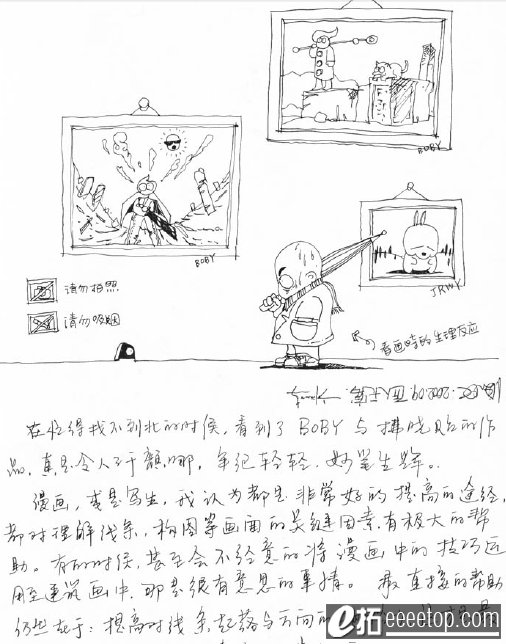 BOBY
BOBY
JRWK
请勿拍照
请勿吸烟
看画时的生理反应
2002.09
在忙得找不到北的时候,看到了 BOBY 与
作
品,真是令人汗颜啊,年纪轻轻,妙笔生辉。
漫画,或是写生,我认为都是非常好的提高的途经,
都对理解线条,构图等画面的关键因素有极大的帮
助。有的时候,甚至会不经意的将漫画中的技巧运
用至建筑画中,那是很有意思的事情。最直接的帮助
仍然在于:提高对线条起落与方向的
e拓 eeeetop.com